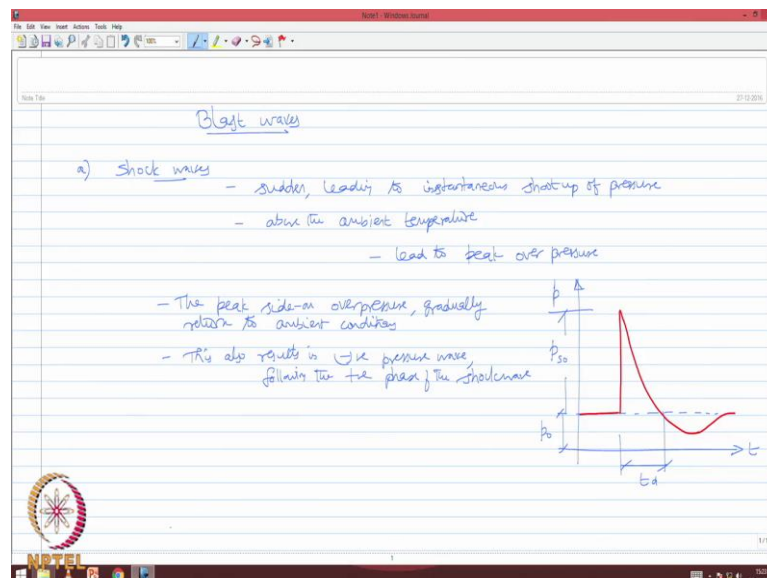 Note1 - Windows Journal
File Edit View Insert Actions Tools Help
Note Title
27-12-2016
Blast waves
a) Shock waves
- sudden, leading to instantaneous shoot up of pressure
- above the ambient temperature
- lead to peak over pressure
- The peak side-on overpressure, gradually
return to ambient conditions
- This also results in -ve pressure wave,
following the +ve phase of the shockwave
p
pso
po
t
td
NPTEL
1